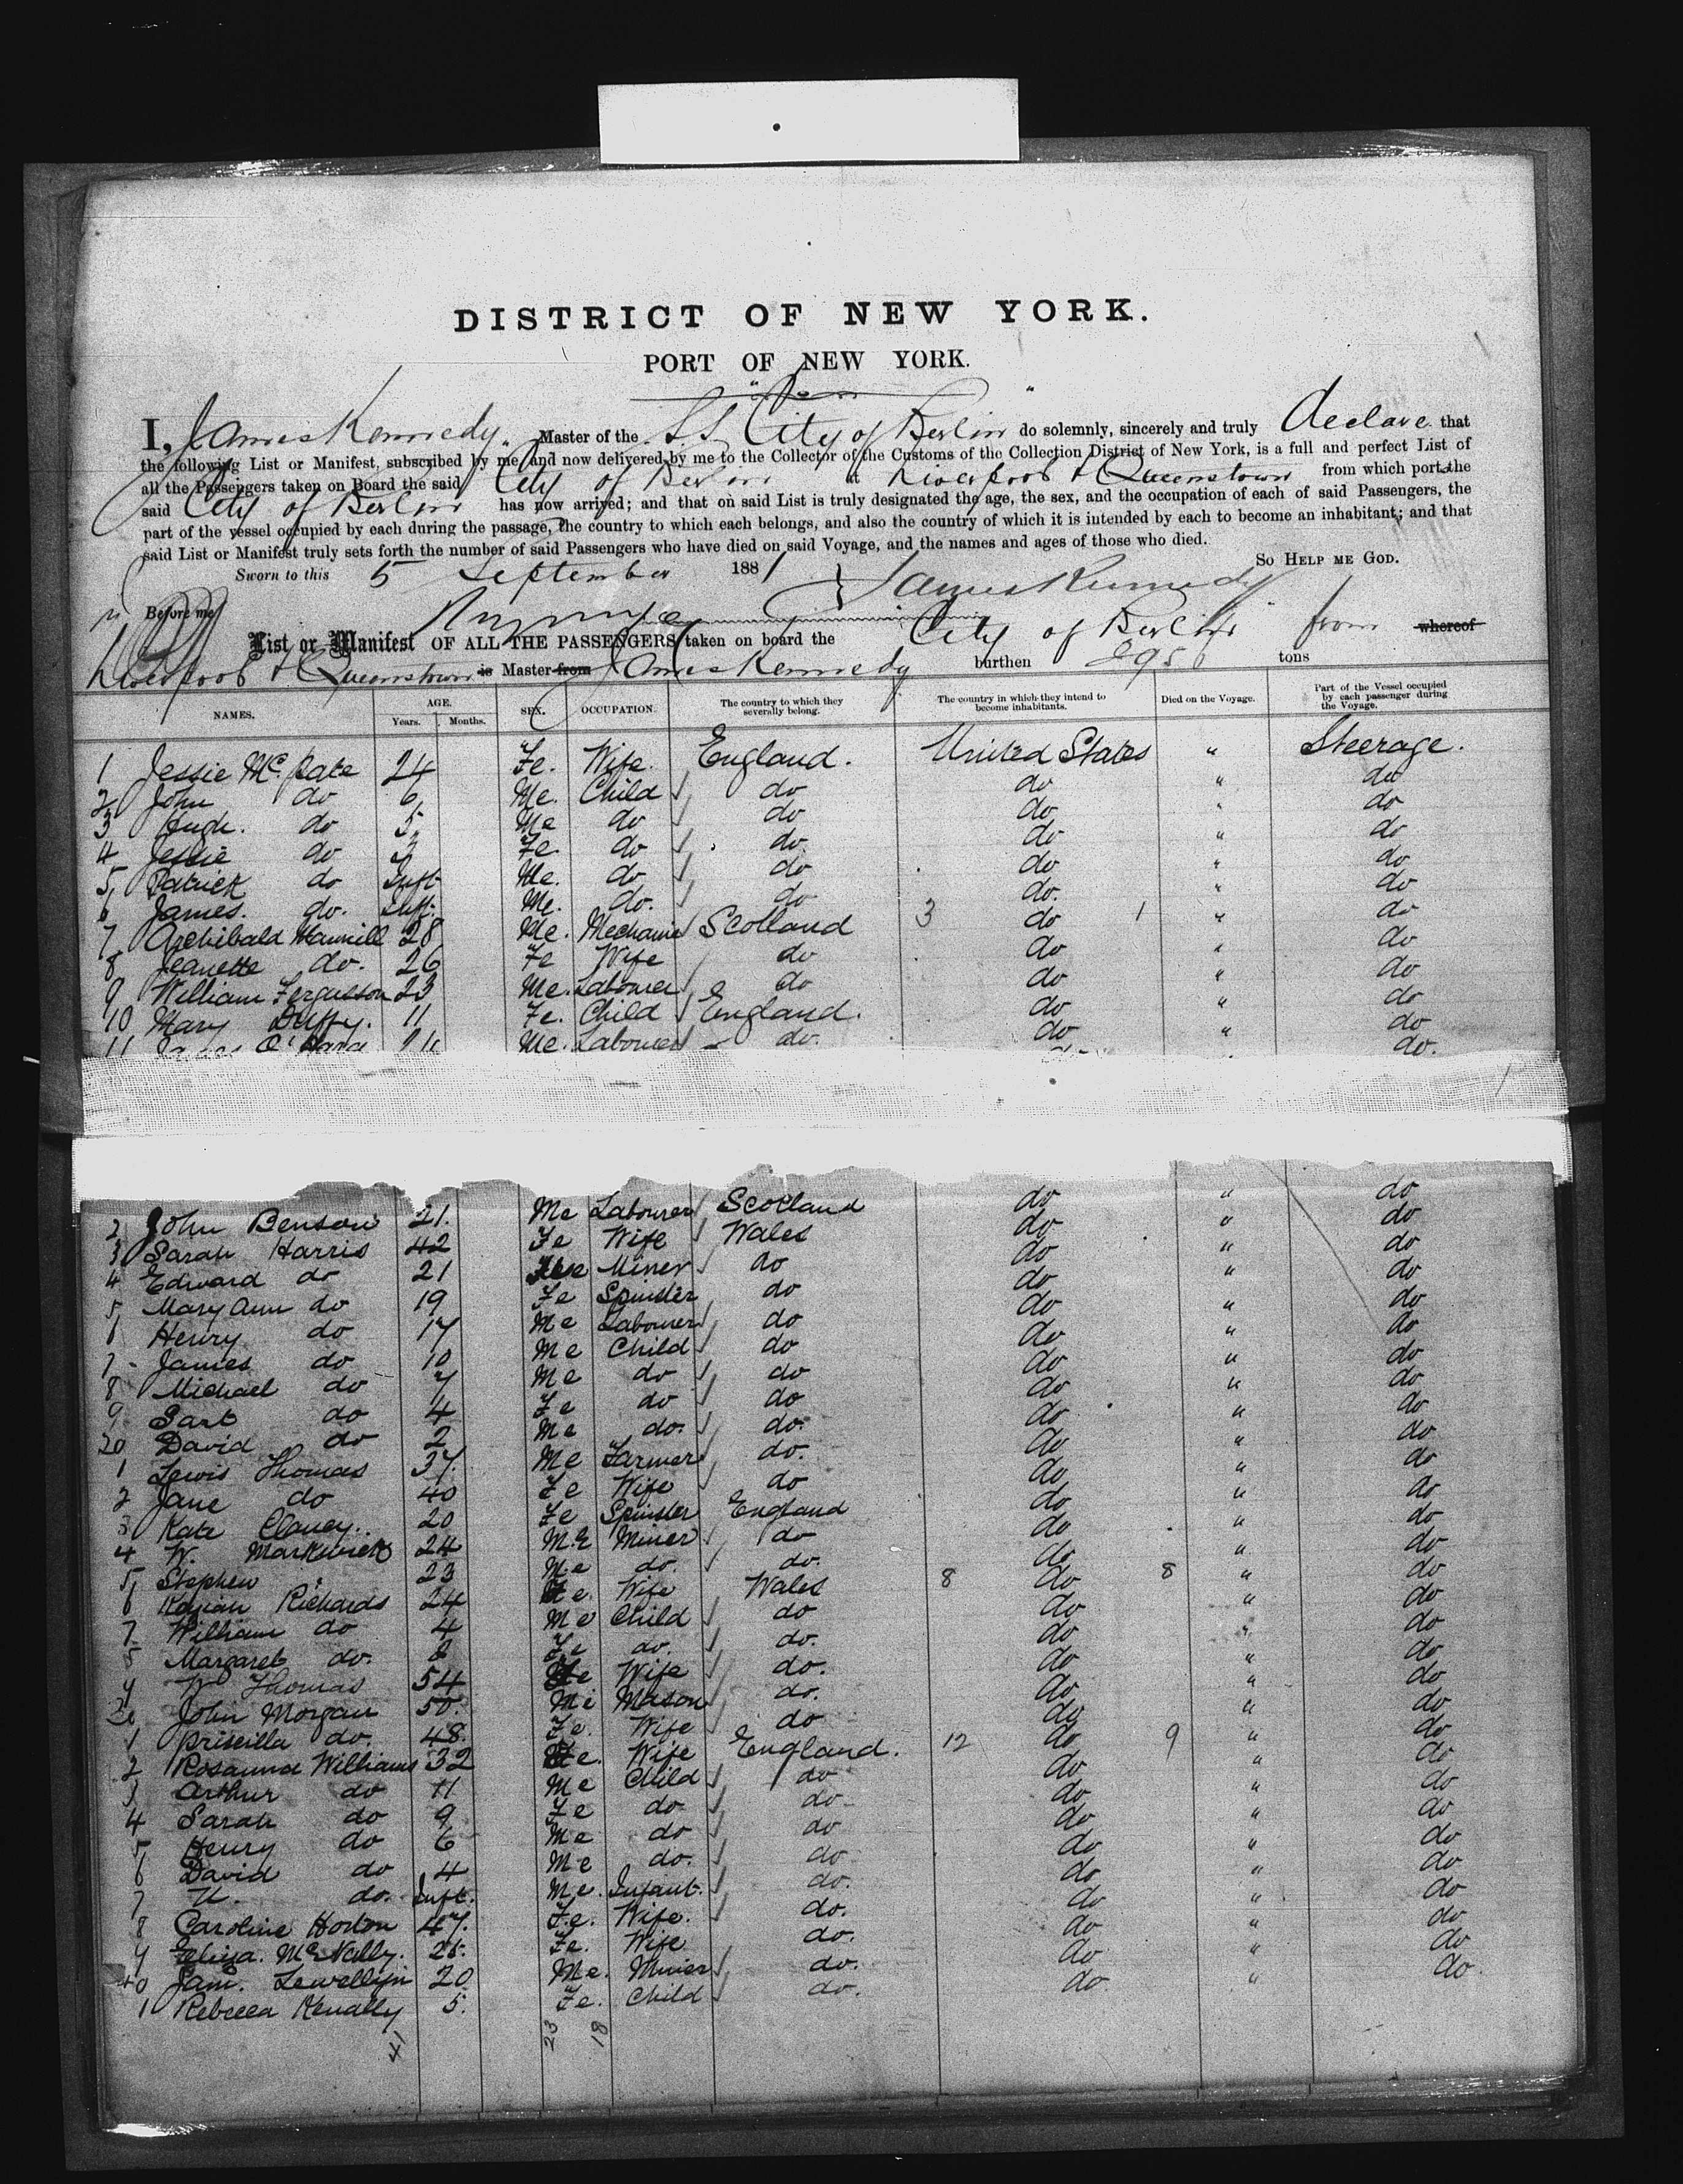 DISTRICT OF NEW YORK.
PORT OF NEW YORK.
I, James Kennedy, Master of the S.S. City of Berlin do solemnly, sincerely and truly declare that
the following List or Manifest, subscribed by me and now delivered by me to the Collector of the Customs of the Collection District of New York, is a full and perfect List of
all the Passengers taken on Board the said City of Berlin at Liverpool & Queenstown from which port the
said City of Berlin has now arrived; and that on said List is truly designated the age, the sex, and the occupation of each of said Passengers, the
part of the vessel occupied by each during the passage, the country to which each belongs, and also the country of which it is intended by each to become an inhabitant; and that
said List or Manifest truly sets forth the number of said Passengers who have died on said Voyage, and the names and ages of those who died.
So Help me God.
Sworn to this 5 September 1881 James Kennedy
Before me
List or Manifest OF ALL THE PASSENGERS taken on board the City of Berlin from whereof
Liverpool & Queenstown is Master from James Kennedy burthen tons
NAMES. AGE. Years. Months. SEX. OCCUPATION. The country to which they severally belong. The country in which they intend to become inhabitants. Died on the Voyage. Part of the Vessel occupied by each passenger during the Voyage.
1 Jessie 24 Fe. Wife. England. United States " Steerage.
2 John do 6 Me. Child do do " do
3 Hugh. do 5 Me do do do " do
4 Jessie do Fe do do do " do
5 Patrick do Inft Me. do do do " do
6 James. do. Inft. Me. do. do do. " do
7 Archibald 28 Me. Mechanic Scotland 3 do 1 " do
8 Jeanette do. 26 Fe Wife do do " do
9 William Fergusson 23 Me. Labourer do do " do
10 Mary Duffy. 11 Fe. Child England. do " do
11 James O'Hara Me. Labourer do. do do.
2 John Benson 21. Me Labourer Scotland do " do
3 Sarah Harris 42 Fe Wife Wales do " do
4 Edward do 21 Me Miner do do " do
5 Mary Ann do 19 Fe Spinster do do " do
6 Henry do 17 Me Labourer do do " do
7 James do 10 Me Child do do " do
8 Michael do 7 Me do do do " do
9 do 4 Fe do do do " do
20 David do 2 Me do. do. do " do
1 Lewis Thomas 37. Me Farmer do. do " do
2 Jane do 40 Fe Wife do do " do
3 Kate Clancy.. 20 Fe Spinster England do " do
4 W. Markwick 24 Me Miner do do " do
5 Stephen " 23 Me do. do. do " do
6 Richards 24 Fe. Wife Wales 8 do 8 " do
7 William do 4 Me Child do do " do
Margaret do. Fe do. do. do " do
9 W Thomas 54 Wife do. do " do
John Morgan 50. Me Mason do. do " do
1 Priscilla do. 48. Fe. Wife do do " do
2 Rosanna Williams 32 Fe. Wife England. 12 do 9 " do
3 Arthur do 11 Me Child do do " do
4 Sarah do 9 Fe do do do " do
5 Henry do 6 Me do do do " do
6 David do 4 Me do. do do " do
7 do. Inft. Me. Infant. do. do " do
8 Caroline Horton 47. Fe. Wife. do. do " do
9 Eliza. McNally. Fe. Wife do. do " do
40 Jam. Lewellyn 20 Me. Miner do. do " do
1 Rebecca Kenally 5. Fe. Child do. do " do.
41 23 18